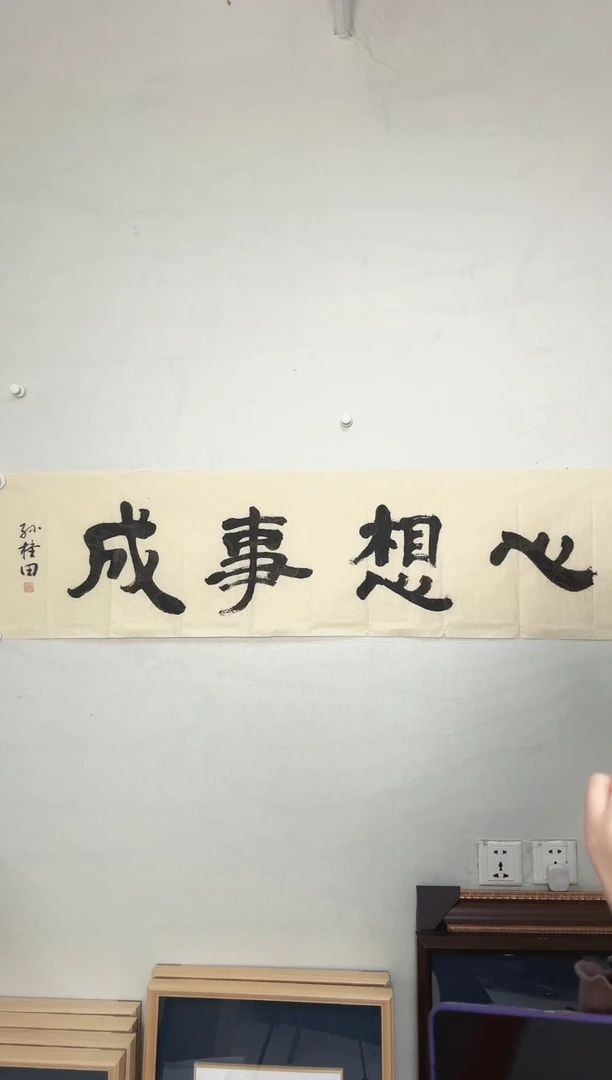 心想事成
孙桂田